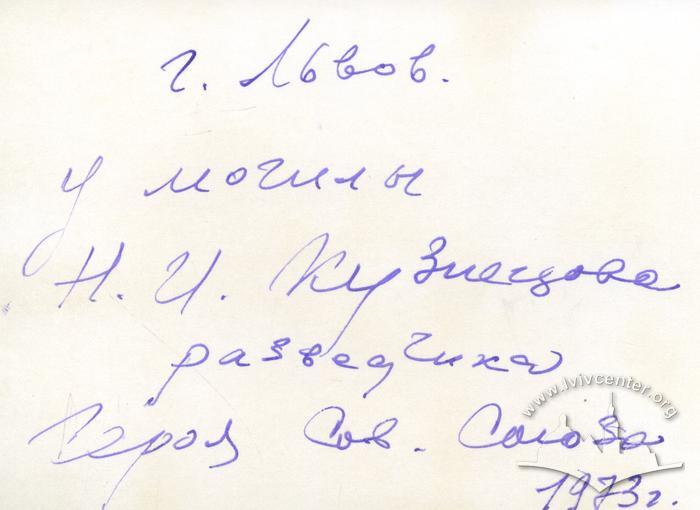 г. Львов.
у могилы
Н. И. Кузнецова
разведчика
Героя Сов. Союза
1973 г.
www.lvivcenter.org